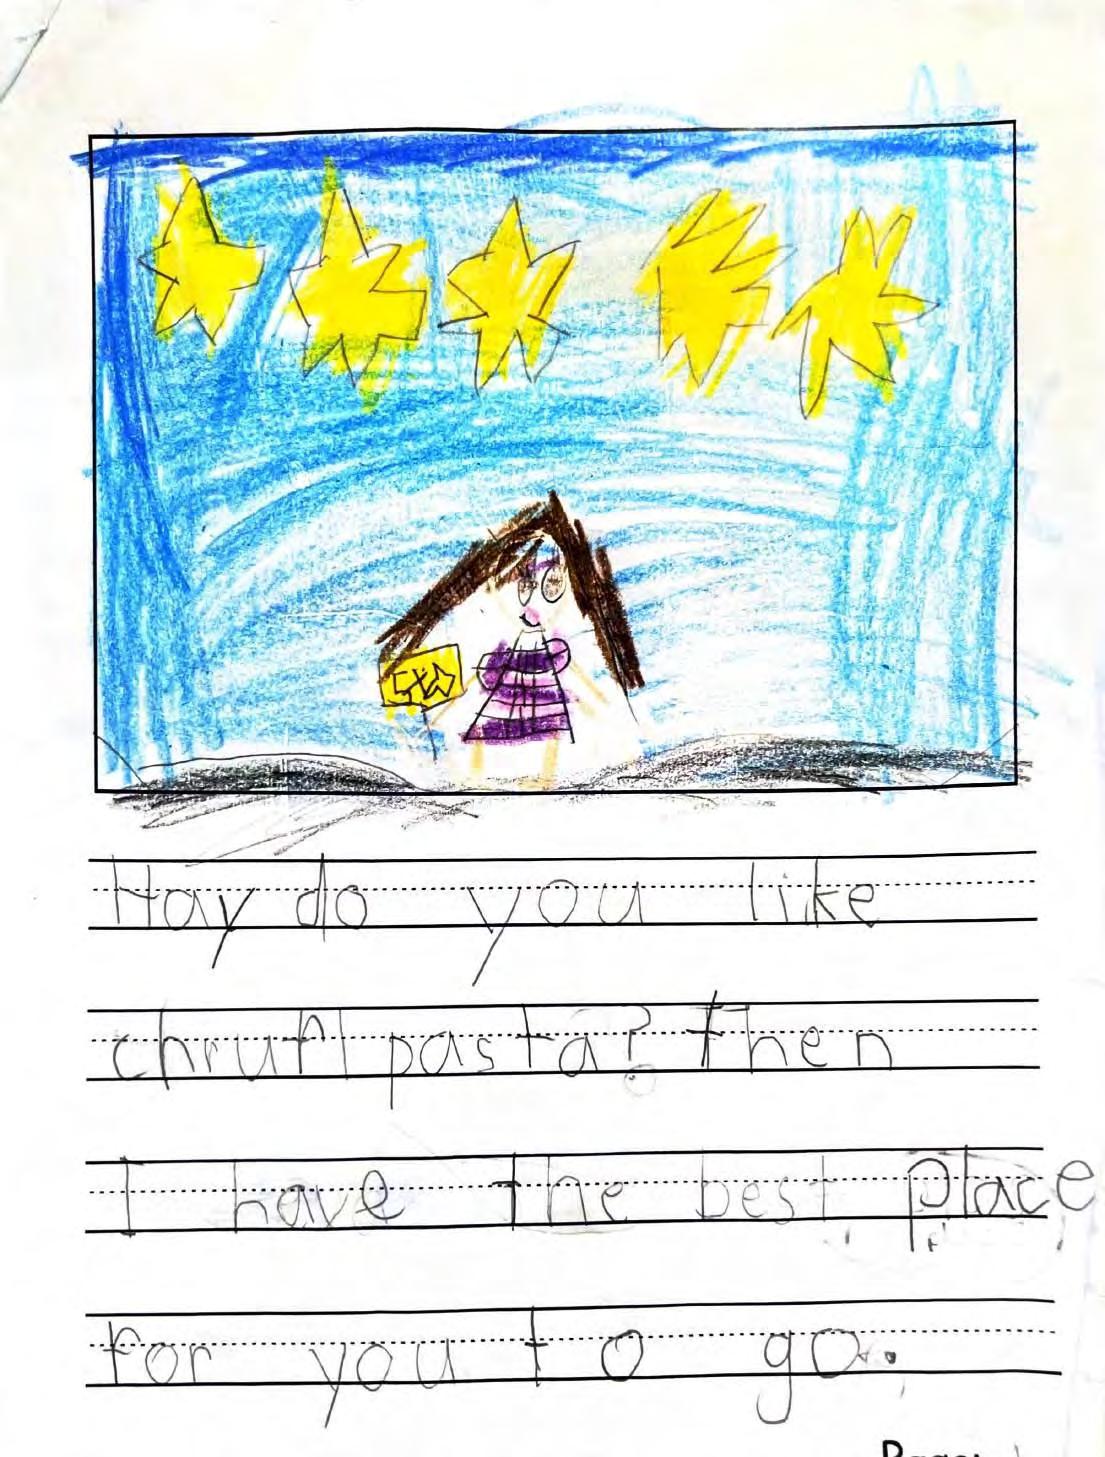 Hay do you like
chrufl pasta? then
I have the best place
for you to go.
Page: